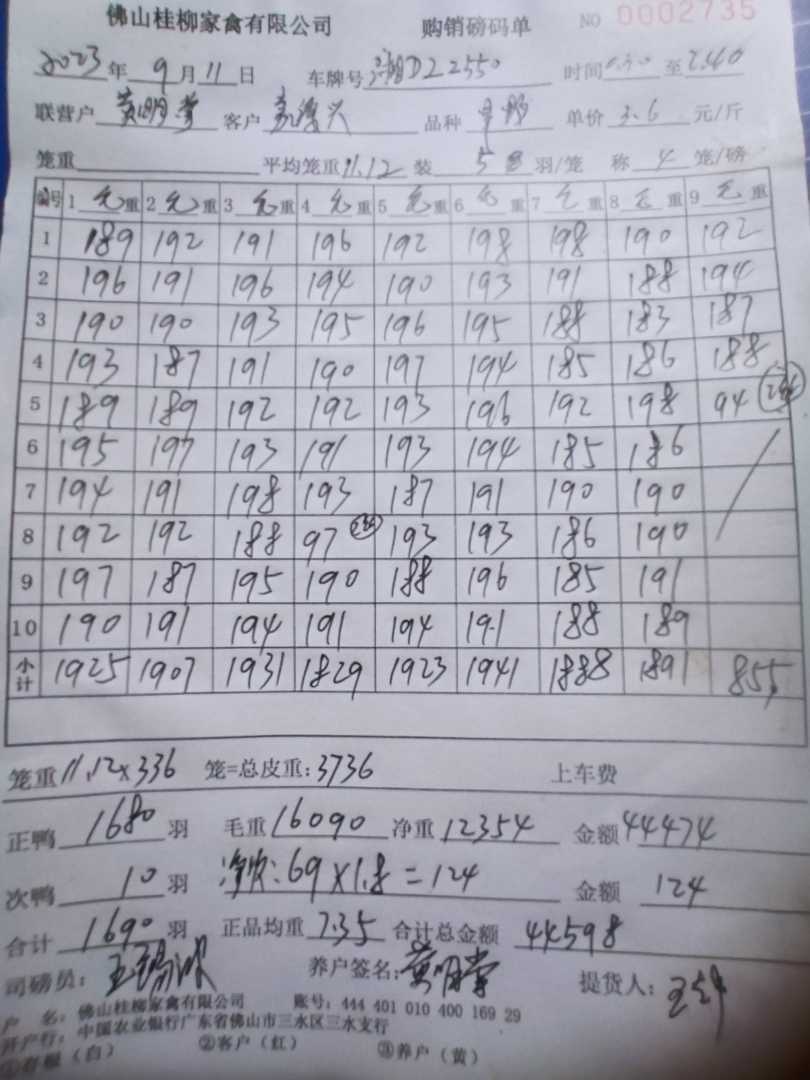 佛山桂柳家禽有限公司 购销磅码单 NO 0002735
2023年 9月 11日 车牌号 D22550 时间 至 2.40
联营户 黄明 客户 兴 品种 单价 3.6 元/斤
笼重 平均笼重 11.12 装 5 羽/笼 称 4 笼/磅
编号 1 毛重 2 毛重 3 毛重 4 毛重 5 毛重 6 毛重 7 毛重 8 毛重 9 毛重
1 189 192 191 196 192 198 198 190 192
2 196 191 196 194 190 193 191 188 194
3 190 190 193 195 196 195 188 183 187
4 193 187 191 190 197 194 185 186 188
5 189 189 192 192 193 196 192 198 94
6 195 197 193 191 193 194 185 186
7 194 191 198 193 187 191 190 190
8 192 192 188 97 193 193 186 190
9 197 187 195 190 188 196 185 191
10 190 191 194 191 194 191 188 189
小计 1925 1907 1931 1829 1923 1941 1888 1891 855
笼重 11.12×336 笼=总皮重: 3736 上车费
正鸭 1680 羽 毛重 16090 净重 12354 金额 44474
次鸭 10 羽 净次: 69×1.8=124 金额 124
合计 1690 羽 正品均重 7.35 合计总金额 44598
司磅员: 王锡 养户签名: 黄明 提货人: 王
户 名: 佛山桂柳家禽有限公司 账号: 444 401 010 400 169 29
开户行: 中国农业银行广东省佛山市三水区三水支行
①存根(白) ②客户(红) ③养户(黄)